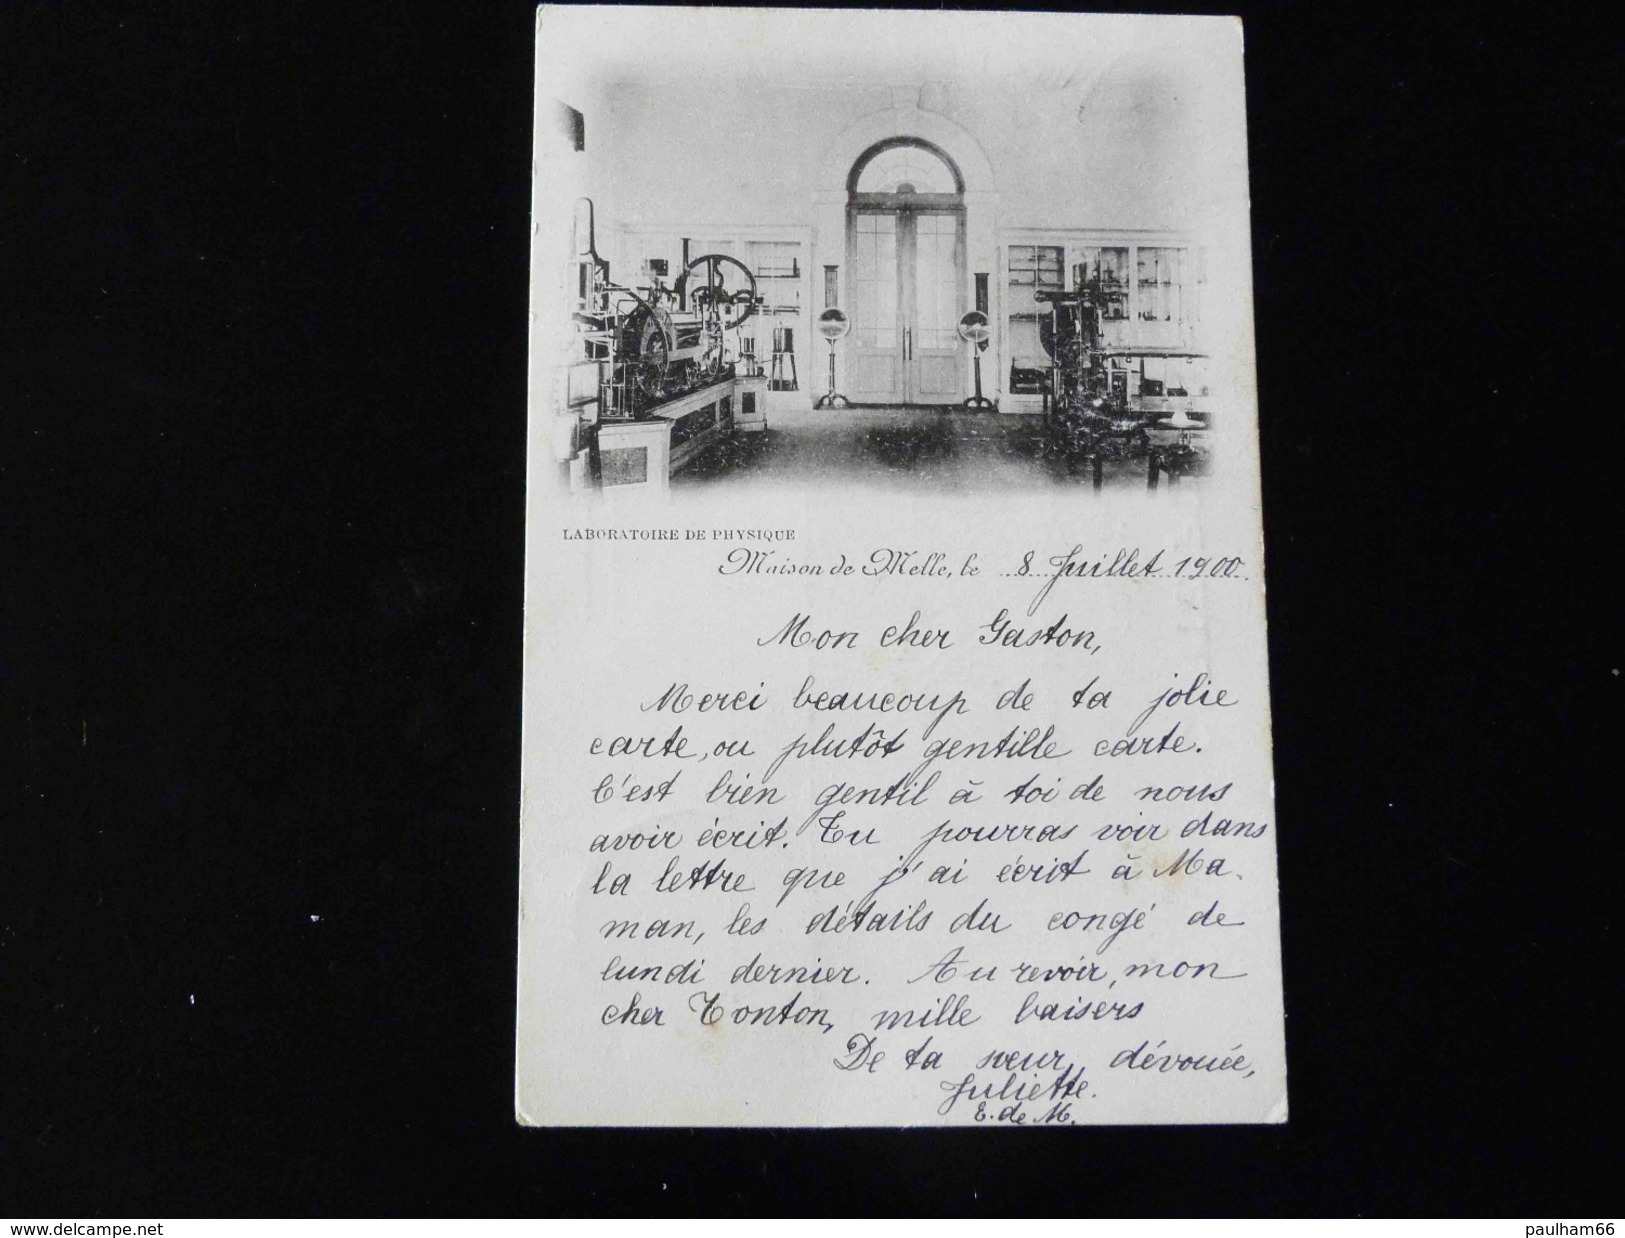 LABORATOIRE DE PHYSIQUE
Maison de Melle, le 8 Juillet 1900.
Mon cher Gaston,
Merci beaucoup de ta jolie
carte, ou plutôt gentille carte.
C'est bien gentil à toi de nous
avoir écrit. Tu pourras voir dans
la lettre que j'ai écrit à Ma-
man, les détails du congé de
lundi dernier. Au revoir, mon
cher Tonton, mille baisers
De ta sœur dévouée,
Juliette.
E. de M.
www.delcampe.net
paulham66